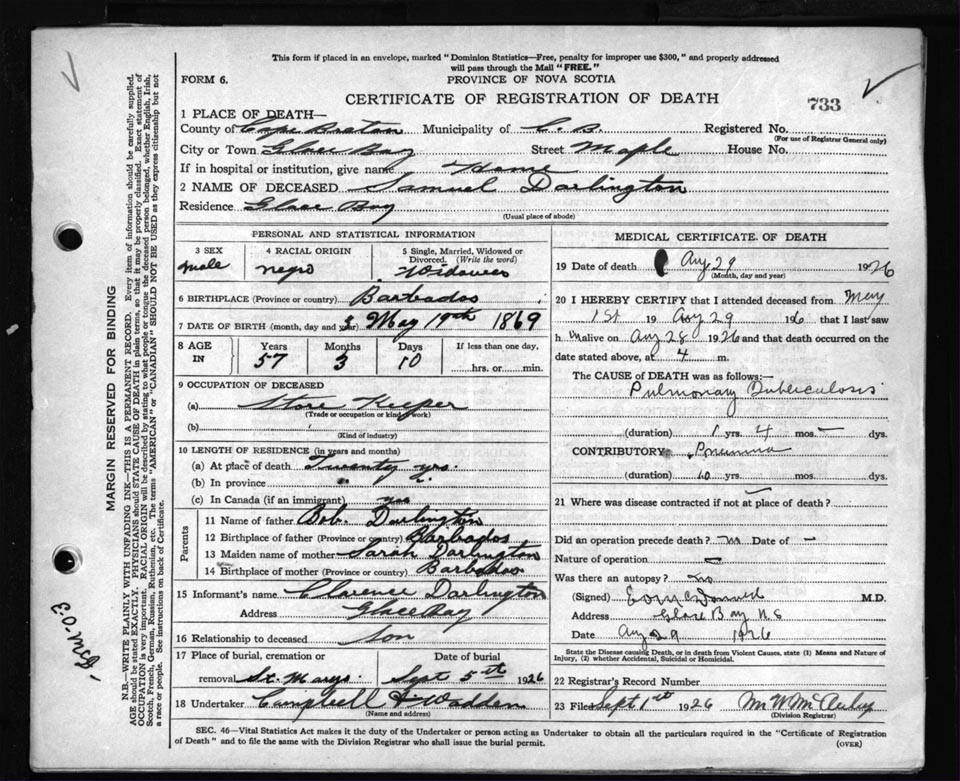 This form if placed in an envelope, marked "Dominion Statistics—Free, penalty for improper use $300," and properly addressed
will pass through the Mail "FREE."
FORM 6.
PROVINCE OF NOVA SCOTIA
CERTIFICATE OF REGISTRATION OF DEATH
733
1 PLACE OF DEATH—
County of Cape Breton Municipality of C. B. Registered No.
(For use of Registrar General only)
City or Town Glace Bay Street Maple House No.
If in hospital or institution, give name Home
2 NAME OF DECEASED Samuel Darlington
Residence Glace Bay
(Usual place of abode)
PERSONAL AND STATISTICAL INFORMATION
3 SEX 4 RACIAL ORIGIN 5 Single, Married, Widowed or
Divorced. (Write the word)
male negro Widower
6 BIRTHPLACE (Province or country) Barbados
7 DATE OF BIRTH (month, day and May 19th 1869
8 AGE IN Years Months Days If less than one day,
57 3 10 hrs. or min.
9 OCCUPATION OF DECEASED
(a) Store Keeper
(Trade or occupation or kind of work)
(b)
(Kind of industry)
10 LENGTH OF RESIDENCE (in years and months)
(a) At place of death Twenty yrs.
(b) In province " "
(c) In Canada (if an immigrant) yes
Parents
11 Name of father Bob. Darlington
12 Birthplace of father (Province or country) Barbados
13 Maiden name of mother Sarah Darlington
14 Birthplace of mother (Province or country) Barbados
15 Informant's name Clarence Darlington
Address Glace Bay
16 Relationship to deceased Son
17 Place of burial, cremation or Date of burial
removal St. Marys. Sept 5th 1926
18 Undertaker Campbell & Wadden
(Name and address)
MEDICAL CERTIFICATE OF DEATH
19 Date of death Aug 29 1926
(Month, day and year)
20 I HEREBY CERTIFY that I attended deceased from May
1st 19 Aug 29 1926 that I last saw
h im alive on Aug 28 1926 and that death occurred on the
date stated above, at 4 m.
The CAUSE of DEATH was as follows:—
Pulmonary Tuberculosis
(duration) 1 yrs. 4 mos. — dys.
CONTRIBUTORY Pneumonia
(duration) 10 yrs. mos. dys.
21 Where was disease contracted if not at place of death? —
Did an operation precede death? no Date of —
Nature of operation —
Was there an autopsy? no
(Signed) M.D.
Address Glace Bay N.S
Date Aug 29 1926
State the Disease causing Death, or in death from Violent Causes, state (1) Means and Nature of
Injury, (2) whether Accidental, Suicidal or Homicidal.
22 Registrar's Record Number
23 Filed Sept 1st 1926
(Division Registrar)
SEC. 46—Vital Statistics Act makes it the duty of the Undertaker or person acting as Undertaker to obtain all the particulars required in the "Certificate of Registration
of Death" and to file the same with the Division Registrar who shall issue the burial permit.
(OVER)
MARGIN RESERVED FOR BINDING
N.B.—WRITE PLAINLY WITH UNFADING INK—THIS IS A PERMANENT RECORD. Every item of information should be carefully supplied.
AGE should be stated EXACTLY. PHYSICIANS should STATE CAUSE OF DEATH in plain terms, so that it may be properly classified. Exact statement of
OCCUPATION is very important. RACIAL ORIGIN will be described by stating to what people or tongue the deceased person belonged, whether English, Irish,
Scotch, French, German, Russian, Ruthenian, etc. The terms "AMERICAN" or "CANADIAN" SHOULD NOT BE USED as they express citizenship but not
a race or people. See instructions on back of Certificate.